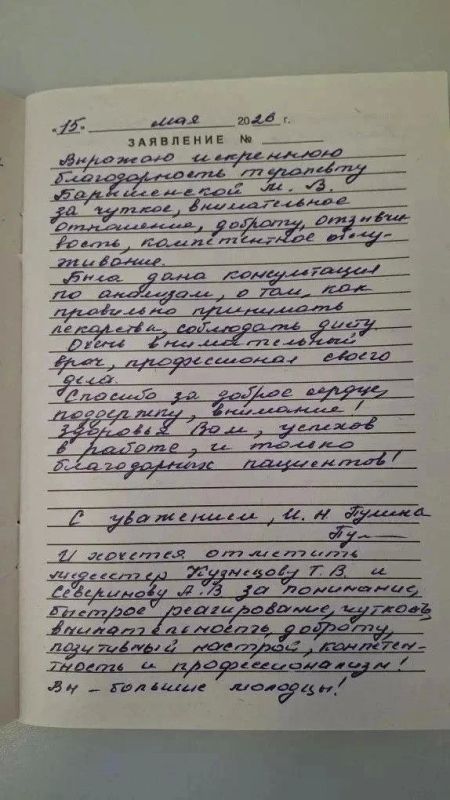 «15» мая 2026 г.
ЗАЯВЛЕНИЕ №
Выражаю искреннюю
благодарность терапевту
Барышенской М. В.
за чуткое, внимательное
отношение, доброту, отзывчи-
вость, компетентное обслу-
живание.
Была дана консультация
по анализам, о том, как
правильно принимать
лекарства, соблюдать диету.
Очень внимательный
врач, профессионал своего
дела.
Спасибо за доброе сердце,
поддержку, внимание!
Здоровья Вам, успехов
в работе, и только
благодарных пациентов!
С уважением, И. Н Пулина
И хочется отметить
медсестер Кузнецову Т. В. и
Северинову А. В за понимание,
быстрое реагирование, чуткость,
внимательность, доброту,
позитивный настрой, компетен-
тность и профессионализм!
Вы – большие молодцы!